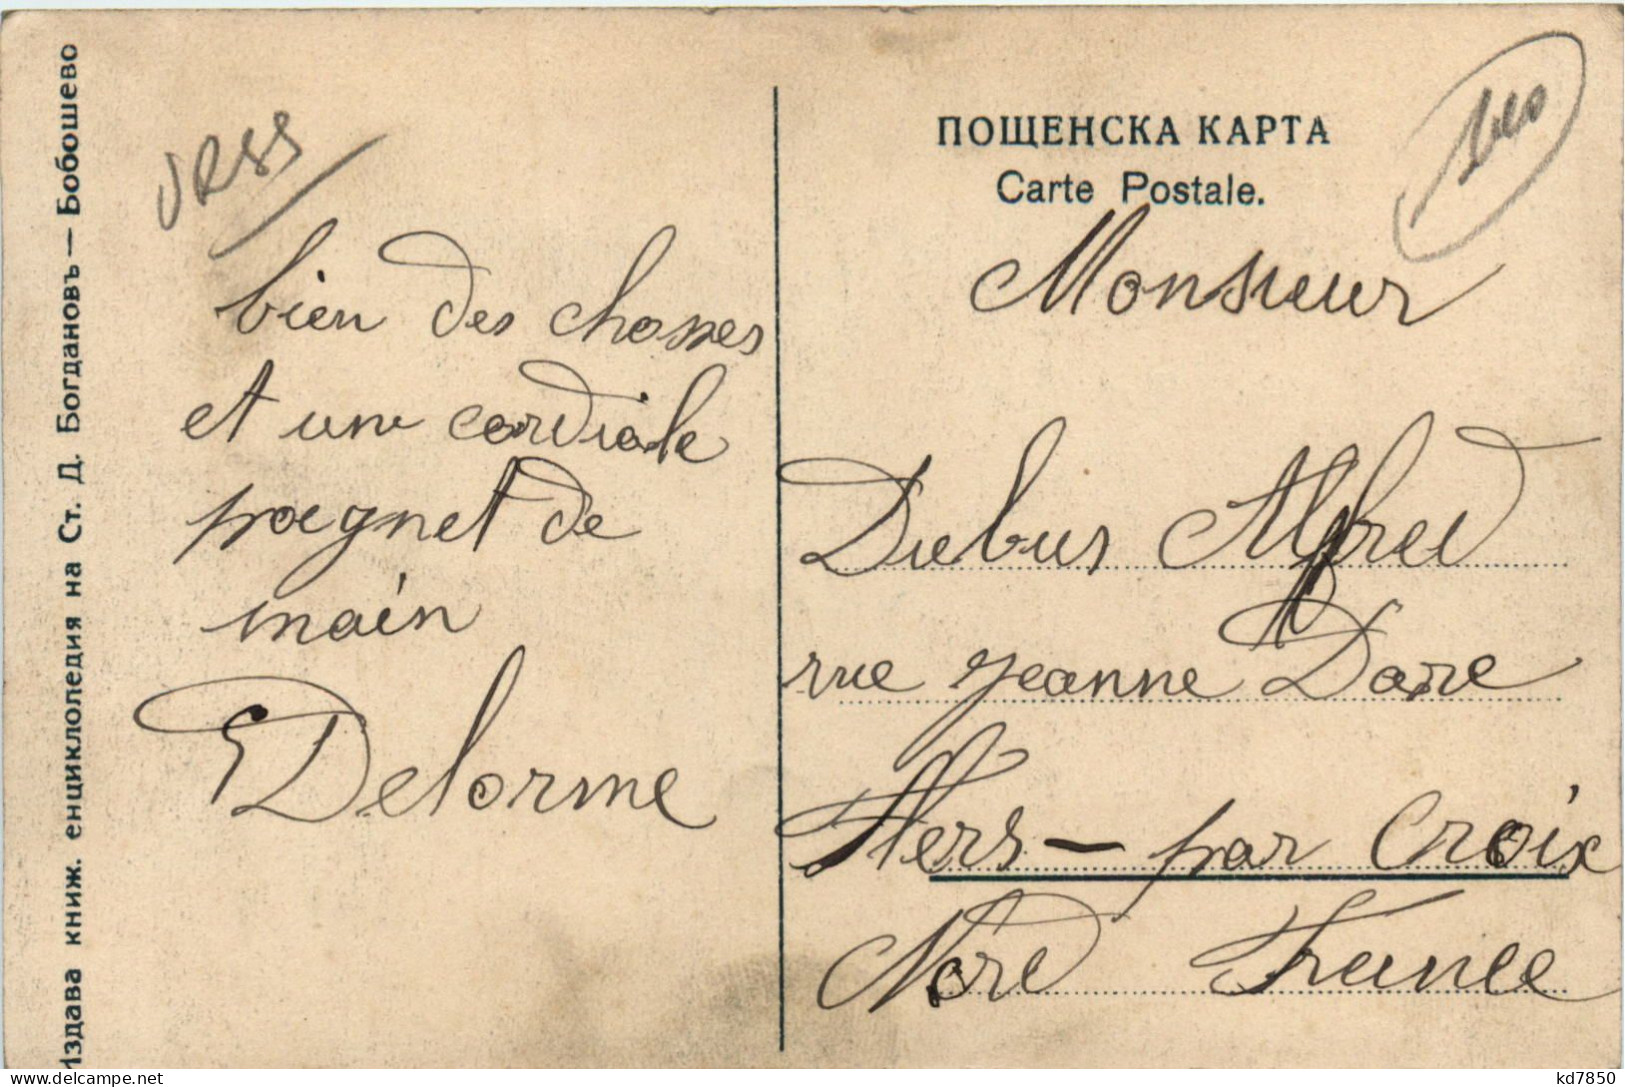 Издава книж. енциклопедия на Ст. Д. Богдановъ — Бобошево
URSS
bien des chosses
et une cordiale
poegnet de
main
E Delorme
ПОЩЕНСКА КАРТА
Carte Postale.
Monsieur
Dubus Alfred
rue Jeanne Darc
Flers — par Croix
Nord France
delcampe.net
kd7850